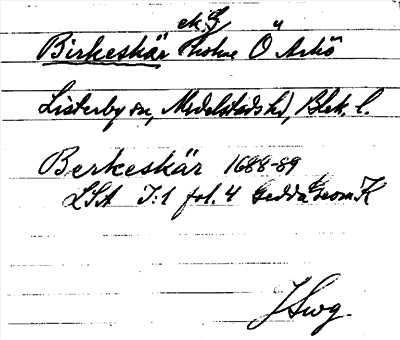 ek. G
Birkeskär holme Ö Arkö
Listerby sn, Medelstads hd, Blek. l.
Berkeskär 1688-89
LSA I:1 fol. 4 Gedda Geom. K
JSwg.